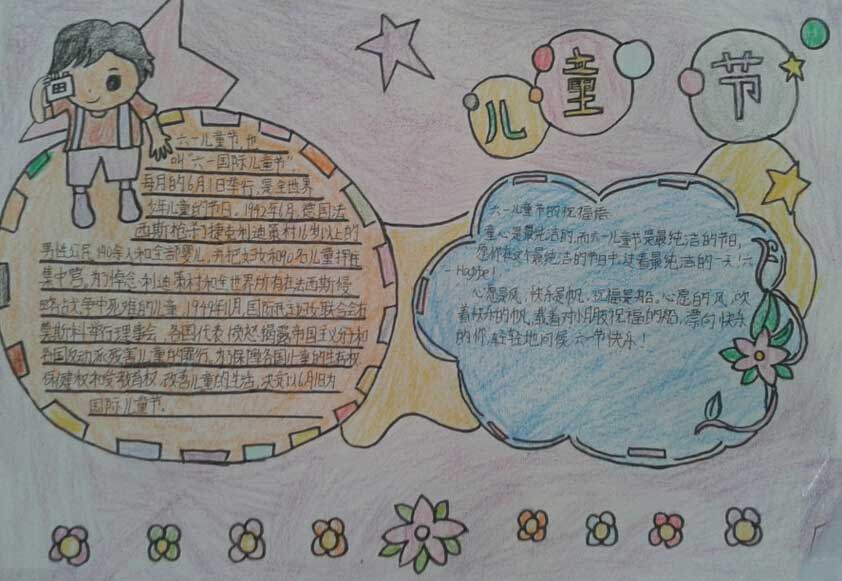 儿童节
六一儿童节,也
叫“六一国际儿童节”,
每月的6月1日举行,是全世界
少年儿童的节日。1942年6月,德国法
西斯枪杀了捷克利迪策村16岁以上的
男性公民140余人和全部婴儿,并把妇女和90名儿童押往
集中营。为了悼念利迪策村和全世界所有在法西斯侵
略战争中死难的儿童,1949年11月,国际民主妇女联合会在
莫斯科举行理事会,各国代表愤怒揭露帝国主义分子和
各国反动派残害儿童的罪行。为了保障各国儿童的生存权
保健权和受教育权,改善儿童的生活,决定以6月1日为
国际儿童节。
六一儿童节的祝福语
童心是最纯洁的,而六一儿童节是最纯洁的节日,
愿你在这个最纯洁的节日中过着最纯洁的一天!六
一
心愿是风,快乐是帆,祝福是船,心愿的风,吹
着快乐的帆,载着对小朋友祝福的船,漂向快乐
的你,轻轻地问候六一节快乐!